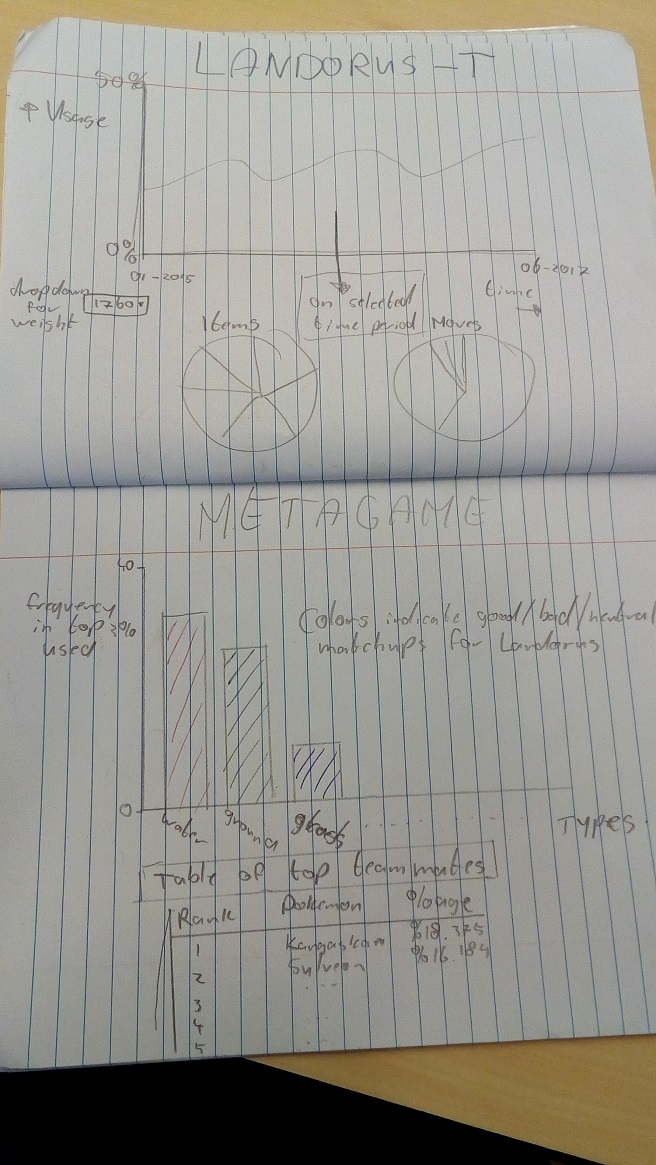 LANDORUS-T
50%
↑ Usage
0%
01-2015
06-2017
dropdown
for
weight
1760
on selected
time period
time
→
Items
Moves
METAGAME
40
frequency
in top 30%
used
Colors indicate good/bad/neutral
matchups for Landorus
0
water
ground
grass
........
TYPES
Table of top teammates
Rank Pokemon %age
1 Kangaskan %18.325
2 Sylveon %16.184
3 ...
4
5